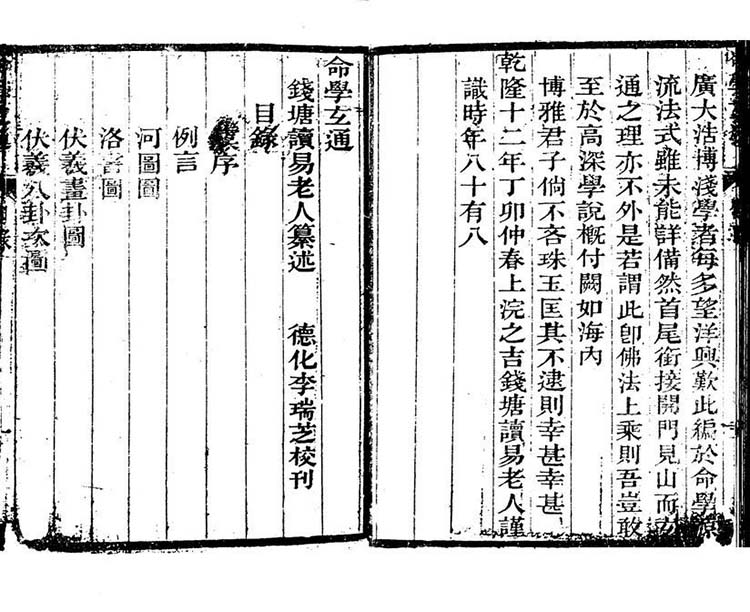 廣大浩博淺學者每多望洋興歎此編於命學源
流法式雖未能詳備然首尾銜接開門見山而玄
通之理亦不外是若謂此卽佛法上乘則吾豈敢
至於高深學說槪付闕如海內
博雅君子倘不吝珠玉匡其不逮則幸甚幸甚
乾隆十二年丁卯仲春上浣之吉錢塘讀易老人謹
識時年八十有八
命學玄通
錢塘讀易老人纂述 德化李瑞芝校刊
目錄
序
例言
河圖圖
洛書圖
伏羲畫卦圖
伏羲八卦次圖